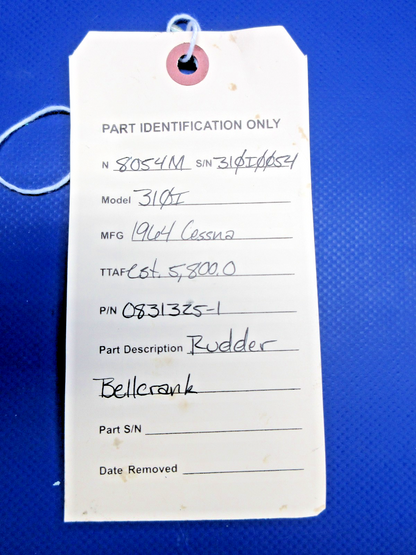 PART IDENTIFICATION ONLY
N 8054M S/N 310I0054
Model 310I
MFG 1964 Cessna
TTAF Est. 5,800.0
P/N 0831325-1
Part Description Rudder
Bellcrank
Part S/N
Date Removed